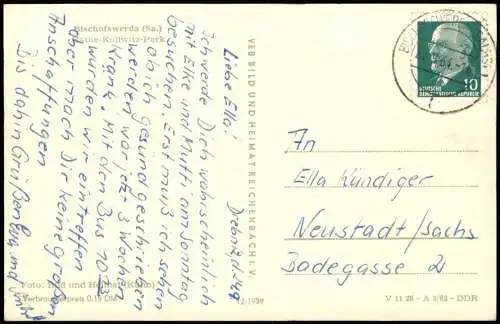 Bischofswerda (Sa.)
Käthe-Kollwitz-Park
Liebe Ella!
Ich werde Dich wahrscheinlich
mit Elke und Mutti am Sonntag
besuchen. Erst muß ich sehen
ob ich gesund geschrieben
werde, war jetzt 3 Wochen
krank. Mit den Bus 10
wurden wir eintreffen
aber mach Dir keine großen
Anschaffungen
Bis dahin Grüßen
und
Foto: Bild und Heimat
Verbraucherpreis 0,15 DM
VEB BILD UND HEIMAT REICHENBACH I. V.
12-1939
DEUTSCHE
DEMOKRATISCHE REPUBLIK
10
An
Ella Kündiger
Neustadt/Sachs
Badegasse 2
V 11,28 - A 3/62 - DDR